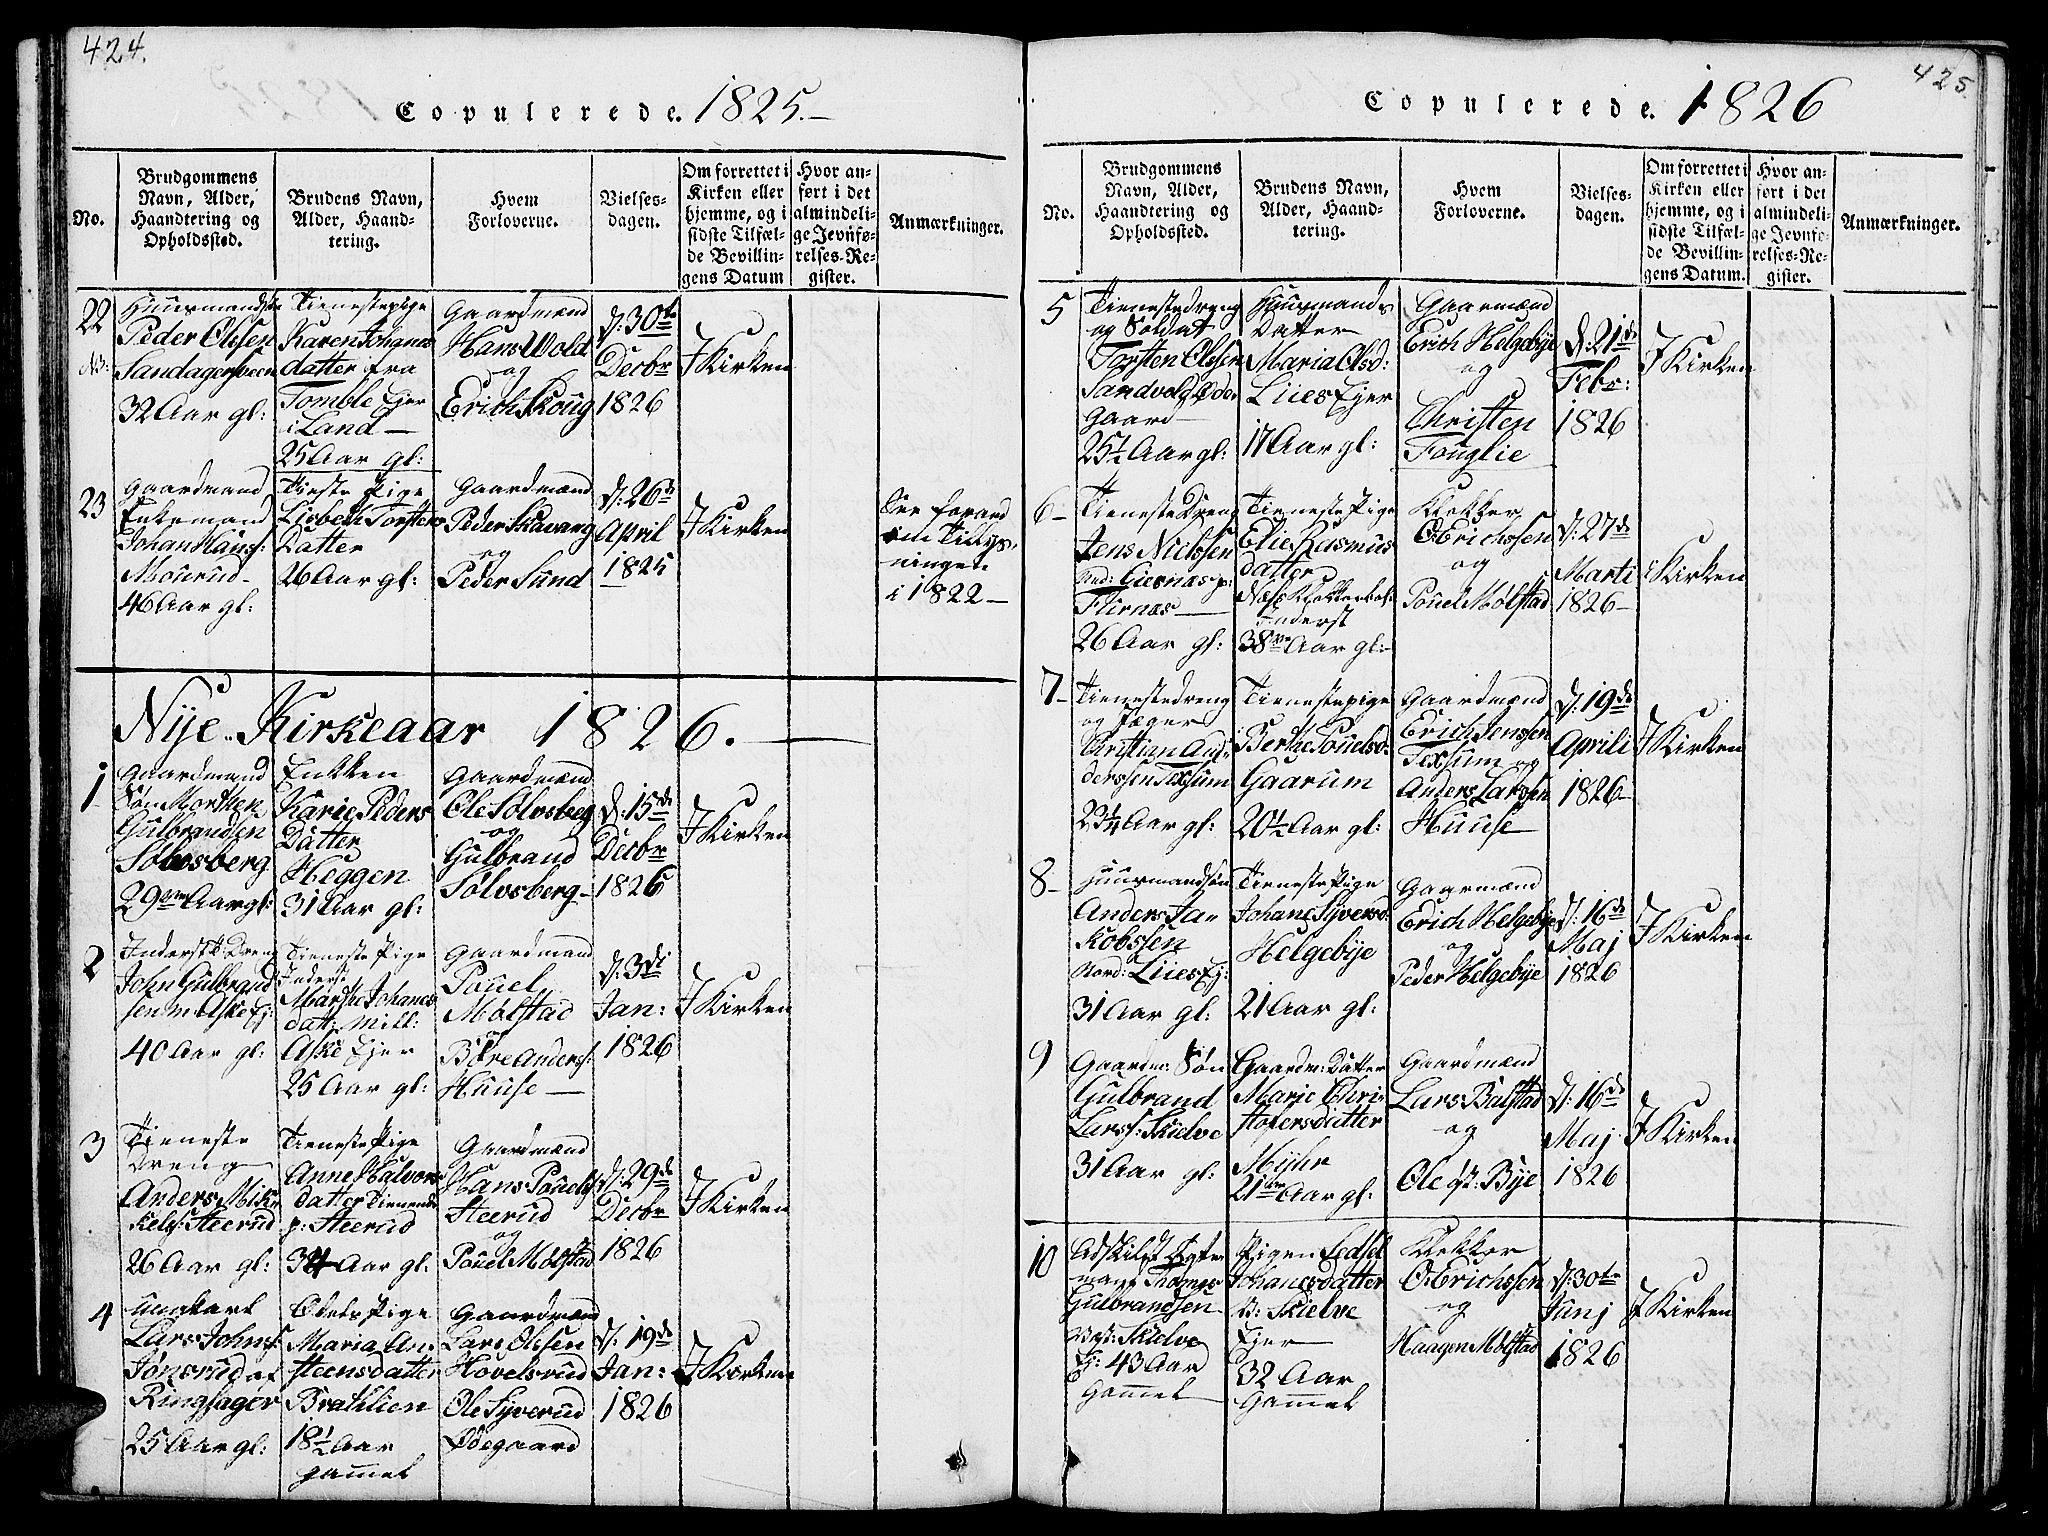 424.
Copulerede. 1825.–
No.
Brudgommens
Navn, Alder,
Haandtering og
Opholdssted.
Brudens Navn,
Alder, Haand-
tering.
Hvem
Forloverne.
Vielses-
dagen.
Om forrettet i
Kirken eller
hjemme, og i
sidste Tilfæl-
de Bevillin-
gens Datum
Hvor an-
ført i det
almindeli-
ge Jevnfø-
relses-Re-
gister.
Anmærkninger.
22
Huusmandsøn
Peder Olssen
Sandagersveen
32 Aar gl:
Tienestepige
Karen Johanes
datter fra
Tomble Ejer
i Land –
25 Aar gl:
Gaardmænd
Hans Wold
og
Erich Skoug
d: 30te
Decbr
1826
J Kirken
23
Gaardmand
Enkemand
Johan Hanss:
Mourud –
46 Aar gl:
Tieste Pige
Lisbeth Torstens
Datter
26 Aar gl:
Gaardmænd
Peder Skavang
og
Peder Sund
d: 26de
April
1825
J Kirken
See forand
om Tillys-
ningen
i 1822 –
Nye Kirkeaar 1826. –
1
Gaardmand
Søn Morthen
Gulbrandsen
Sølvsberg
29 Aar gl:
Enkken
Karie Peders
Datter
Heggen
31 Aar gl:
Gaardmænd
Ole Sølvsberg
og
Gulbrand
Sølvsberg –
d: 15de
Decbr
1826
J Kirken
2
Inderst Dreng
John Gulbrand
sen m Aske Ej:
40 Aar gl:
Tieneste Pige
Inderst
Marthe Johanes
datt: Mell:
Aske Ejer
25 Aar gl:
Gaardmænd
Pouel
Mølstad
og
Børe Anders:
Huuse –
d: 3di
Jan:
1826
J Kirken
3
Tieneste
Dreng
Anders Mik-
kels: Steerud
26 Aar gl:
Tieneste Pige
Anne Halvors
datter Tienende
p: Steerud
34 Aar gl:
Gaardmænd
Hans Pouels:
Steerud
og
Pouel Mølstad
d: 29de
Decbr
1826
J Kirken
4
Ungkarl
Lars Johns:
Jønsrud af
Ringsager
25 Aar gl:
Ødets Pige
Maria An-
steensdatter
Brathlien
18½ Aar
gammel
Gaardmænd
Lars Olssen
Hovelsrud
Ole Syverud
Ødegaard
d: 19de
Jan:
1826
J Kirken
425.
Copulerede. 1826
No.
Brudgommens
Navn, Alder,
Haandtering og
Opholdssted.
Brudens Navn,
Alder, Haand-
tering.
Hvem
Forloverne.
Vielses-
dagen.
Om forrettet i
Kirken eller
hjemme, og i
sidste Tilfæl-
de Bevillin-
gens Datum.
Hvor an-
ført i det
almindeli-
ge Jevnfø-
relses-Re-
gister.
Anmærkninger.
5
Tienestedreng
og Soldat
Torsten Olssen
Sandvolg Øde-
Gaard –
25½ Aar gl:
Huusmands
Datter
Maria Olsd:
Liies Ejer
17 Aar gl:
Gaarmænd
Erich Helgebye
og
Christen
Fouglie
d: 21de
Febr:
1826
J Kirken
6 –
Tieneste Dreng
Jens Nielssen
26 Aar gl:
Tieneste Pige
Elie Rasmus
datter
Inderst
38 Aar gl: –
Klokker
O Erichssen
og
Pouel Mølstad
d: 27de
Marti
1826 –
i Kirken
7 –
Tienestedreng
og Jæger
Christian An-
derssen Texsum
23¼ Aar gl:
Tienestepige
Berthe Pouelsd:
Gaarum
20½ Aar gl:
Gaardmænd
Erich Jenssen
Texsum og
Anders Larsen
Huuse
d: 19de
Aprili
1826 –
J Kirken
8 –
Huusmandsøn
Anders Ja-
kobssen
Nord: Liies Ej:
31 Aar gl:
Tieneste Pige
Johane Syversd:
Helgebye
21 Aar gl:
Gaarmænd
Erich Helgebye
og
Peder Helgebye
d: 16de
Maj
1826
J Kirken
9
Gaardm: Søn
Gulbrand
Larss: Skielve
31 Aar gl:
Gaardm: Datter
Marie Chri-
stofersdatter
Myhr
21 Aar gl:
Gaardmænd
Lars Balstad
og
Ole Øst: Bye
d: 16de
Maj
1826
J Kirken
10
Adskilt Ægte-
mand Thomes
Gulbrandsen
Vest: Skielve
Ej: 43 Aar
Gammel
Pigen Sedsel
Johanesdatter
V: Skielve
Ejer –
32 Aar
Gammel
Klokker
O Erichssen
og
Haagen Mølstad
d: 30te
Junj
1826
J Kirken